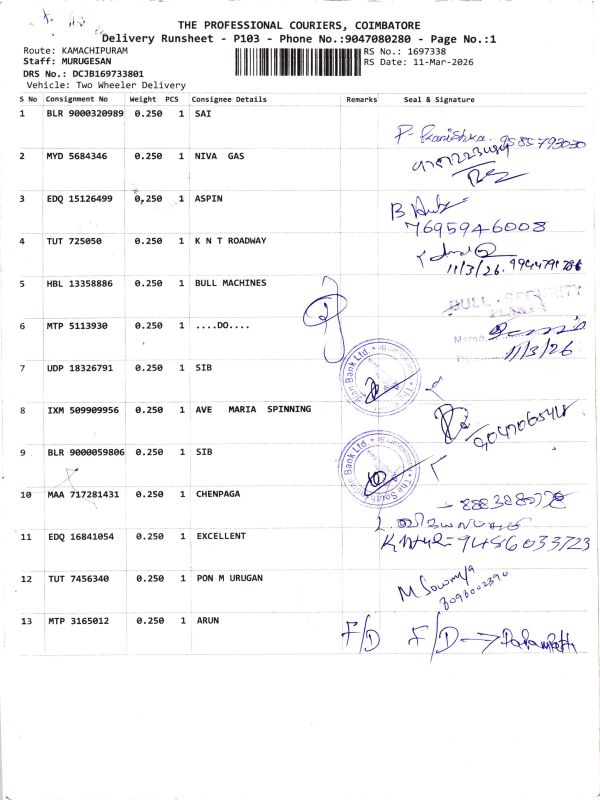 THE PROFESSIONAL COURIERS, COIMBATORE
Delivery Runsheet - P103 - Phone No.:9047080280 - Page No.:1
Route: KAMACHIPURAM
RS No.: 1697338
Staff: MURUGESAN
RS Date: 11-Mar-2026
DRS No.: DCJB169733801
Vehicle: Two Wheeler Delivery
S No Consignment No Weight PCS Consignee Details Remarks Seal & Signature
1 BLR 9000320989 0.250 1 SAI
9585793030
2 MYD 5684346 0.250 1 NIVA GAS
3 EDQ 15126499 0.250 1 ASPIN
B
7695946008
4 TUT 725050 0.250 1 K N T ROADWAY
11/3/26.
5 HBL 13358886 0.250 1 BULL MACHINES
BULL SECURITY
6 MTP 5113930 0.250 1 ....DO....
11/3/26
7 UDP 18326791 0.250 1 SIB
8 IXM 509909956 0.250 1 AVE MARIA SPINNING
9 BLR 9000059806 0.250 1 SIB
10 MAA 717281431 0.250 1 CHENPAGA
11 EDQ 16841054 0.250 1 EXCELLENT
9486033723
12 TUT 7456340 0.250 1 PON M URUGAN
M Sowmya
13 MTP 3165012 0.250 1 ARUN
F/D F/D